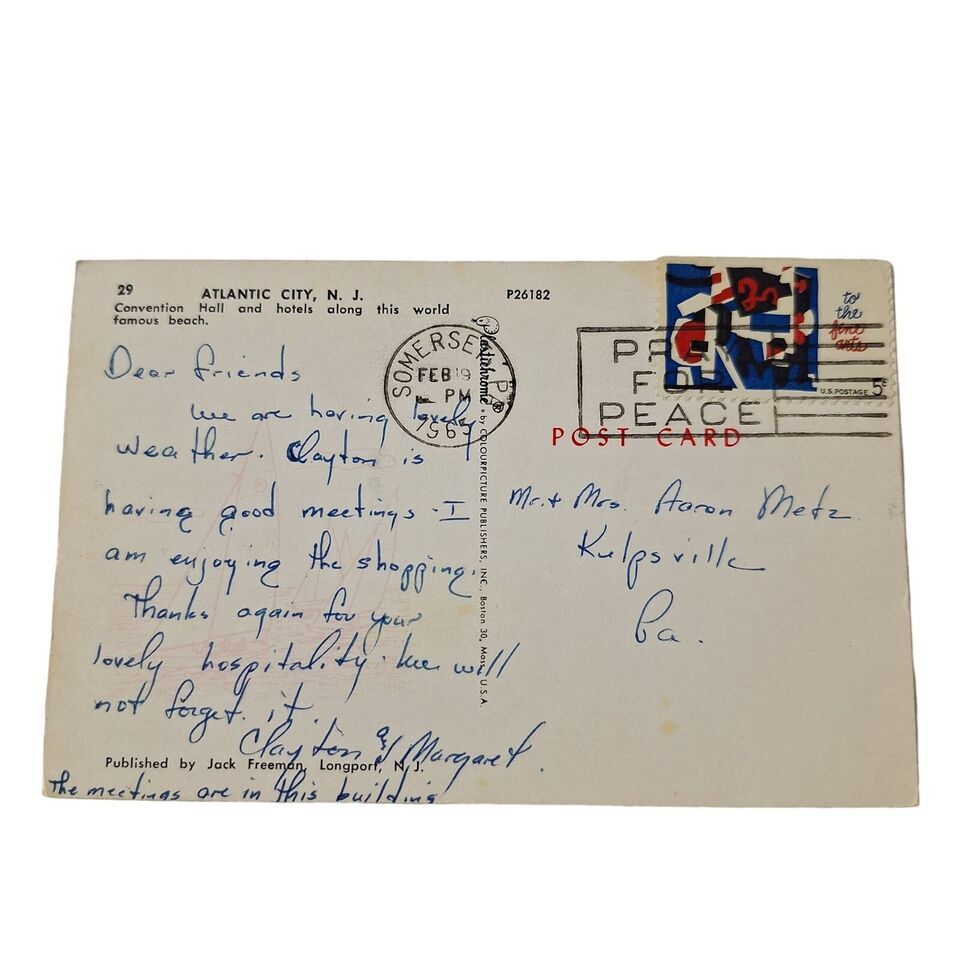 29 ATLANTIC CITY, N. J.
Convention Hall and hotels along this world
famous beach.
P26182
Dear friends
We are having lovely
weather. Clayton is
having good meetings. I
am enjoying the shopping.
Thanks again for your
lovely hospitality. We will
not forget it.
Clayton & Margaret.
Published by Jack Freeman, Longport, N.J.
The meetings are in this building
Plastichrome ® by COLOURPICTURE PUBLISHERS, INC., Boston 30, Mass., U.S.A.
SOMERSET, PA
FEB 19
PM
1967
PRAY
FOR
PEACE
to
the
fine
arts
U.S. POSTAGE 5c
POST CARD
Mr. & Mrs. Aaron Metz
Kulpsville
Pa.